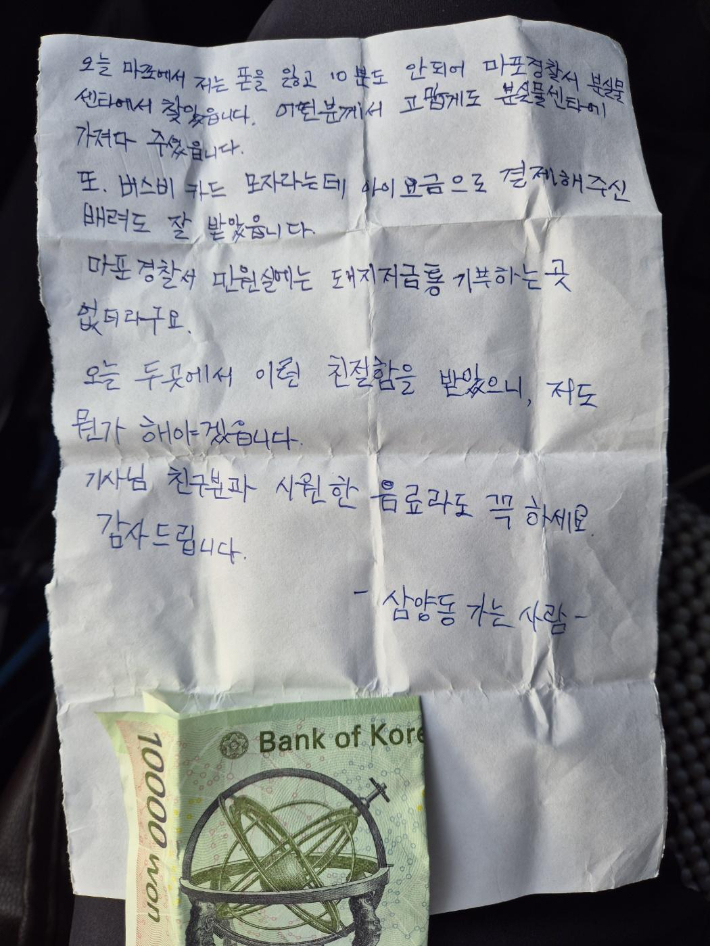 오늘 마포에서 저는 폰을 잃고 10분도 안되어 마포경찰서 분실물
센타에서 찾았습니다. 어떤분께서 고맙게도 분실물센타에
가져다 주셨습니다.
또. 버스비 카드 모자라는데 아이요금으로 결제해주신
배려도 잘 받았읍니다.
마포경찰서 민원실에는 돼지저금통 기부하는곳
없더라구요.
오늘 두곳에서 이런 친절함을 받았으니, 저도
뭔가 해야겠읍니다.
기사님 친구분과 시원한 음료라도 꼭 하세요.
감사드립니다.
- 삼양동 가는 사람 -
Bank of Kore
10000 won